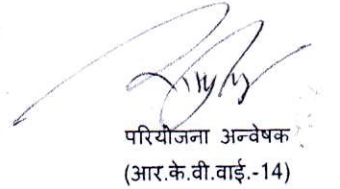 परियोजना अन्वेषक
(आर.के.वी.वाई.-14)